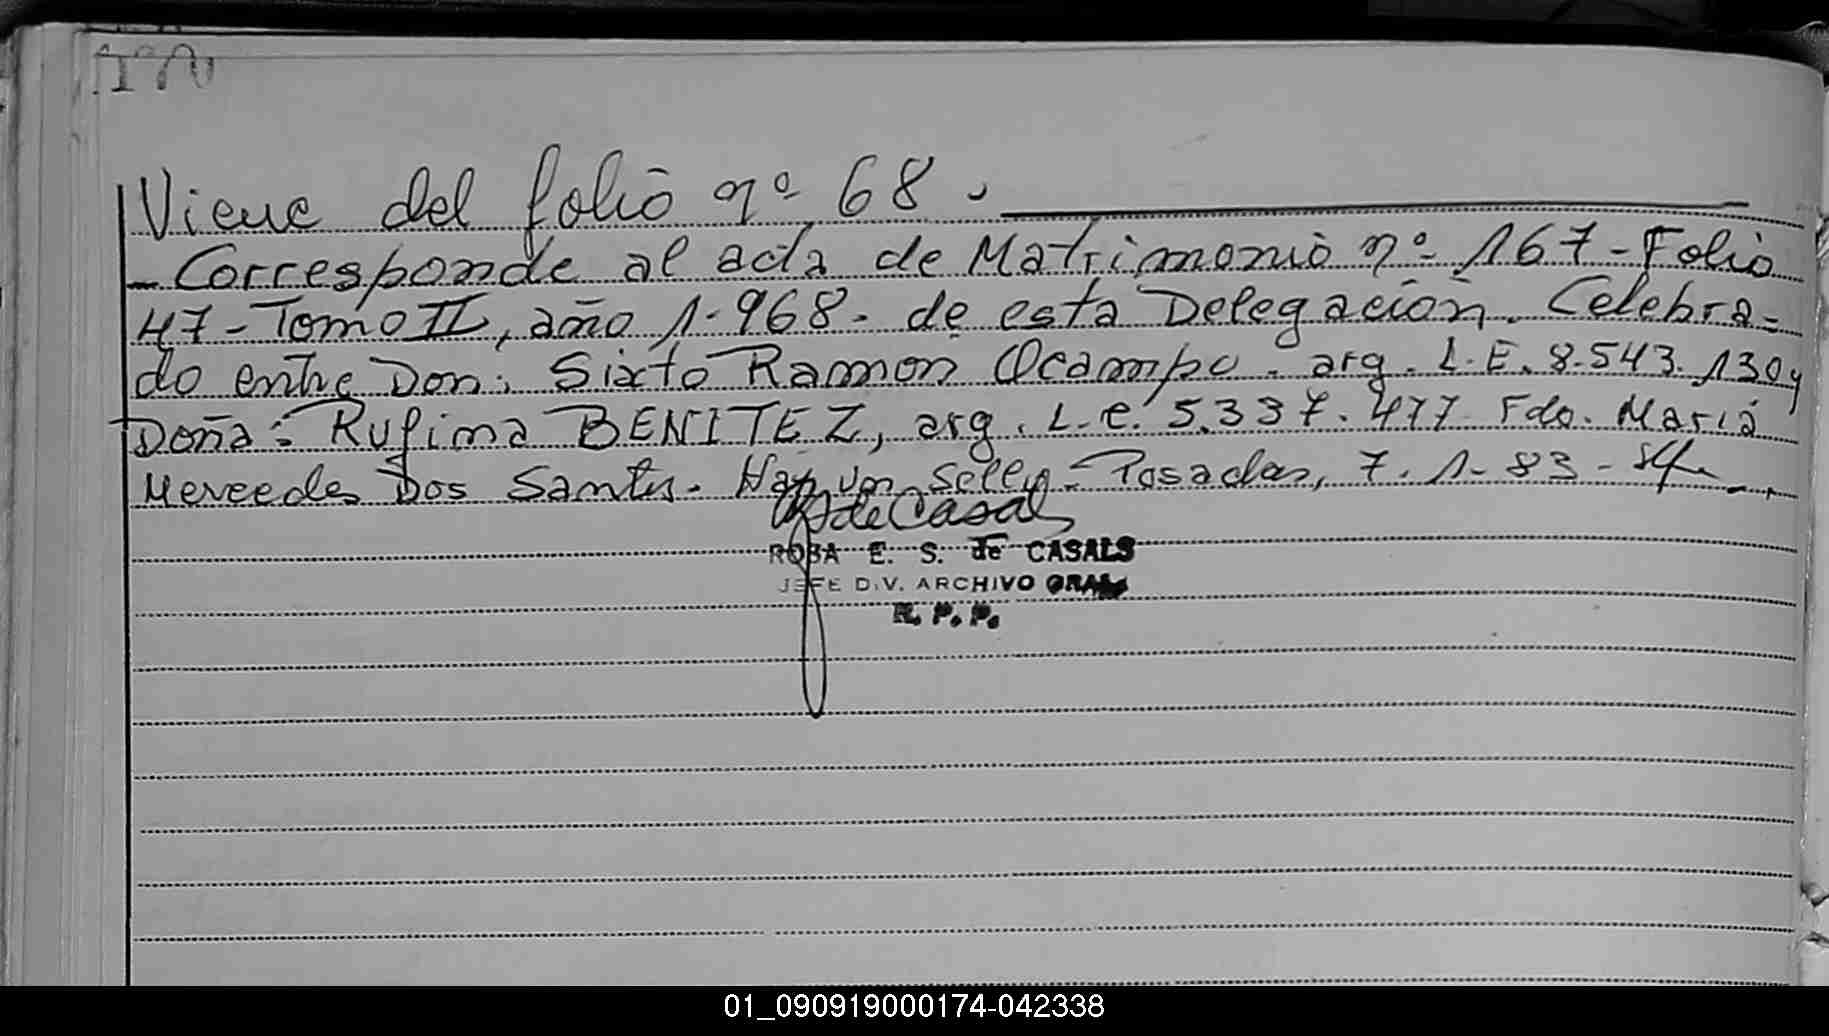 Viene del folio nº 68.
- Corresponde al acta de Matrimonio nº 167 - Folio
47 - Tomo II, año 1.968. de esta Delegación. Celebra-
do entre Don: Sixto Ramon Ocampo. arg. L.E. 8.543.130 y
Doña: Rufima BENITEZ, arg. L.E. 5.337.477 Fdo. Maria
Mercedes Dos Santos. Hay un sello - Posadas, 7.1-83 -
de Casals
ROSA E. S. de CASALS
JEFE DIV. ARCHIVO GRAL
R. P. P.
01_090919000174-042338